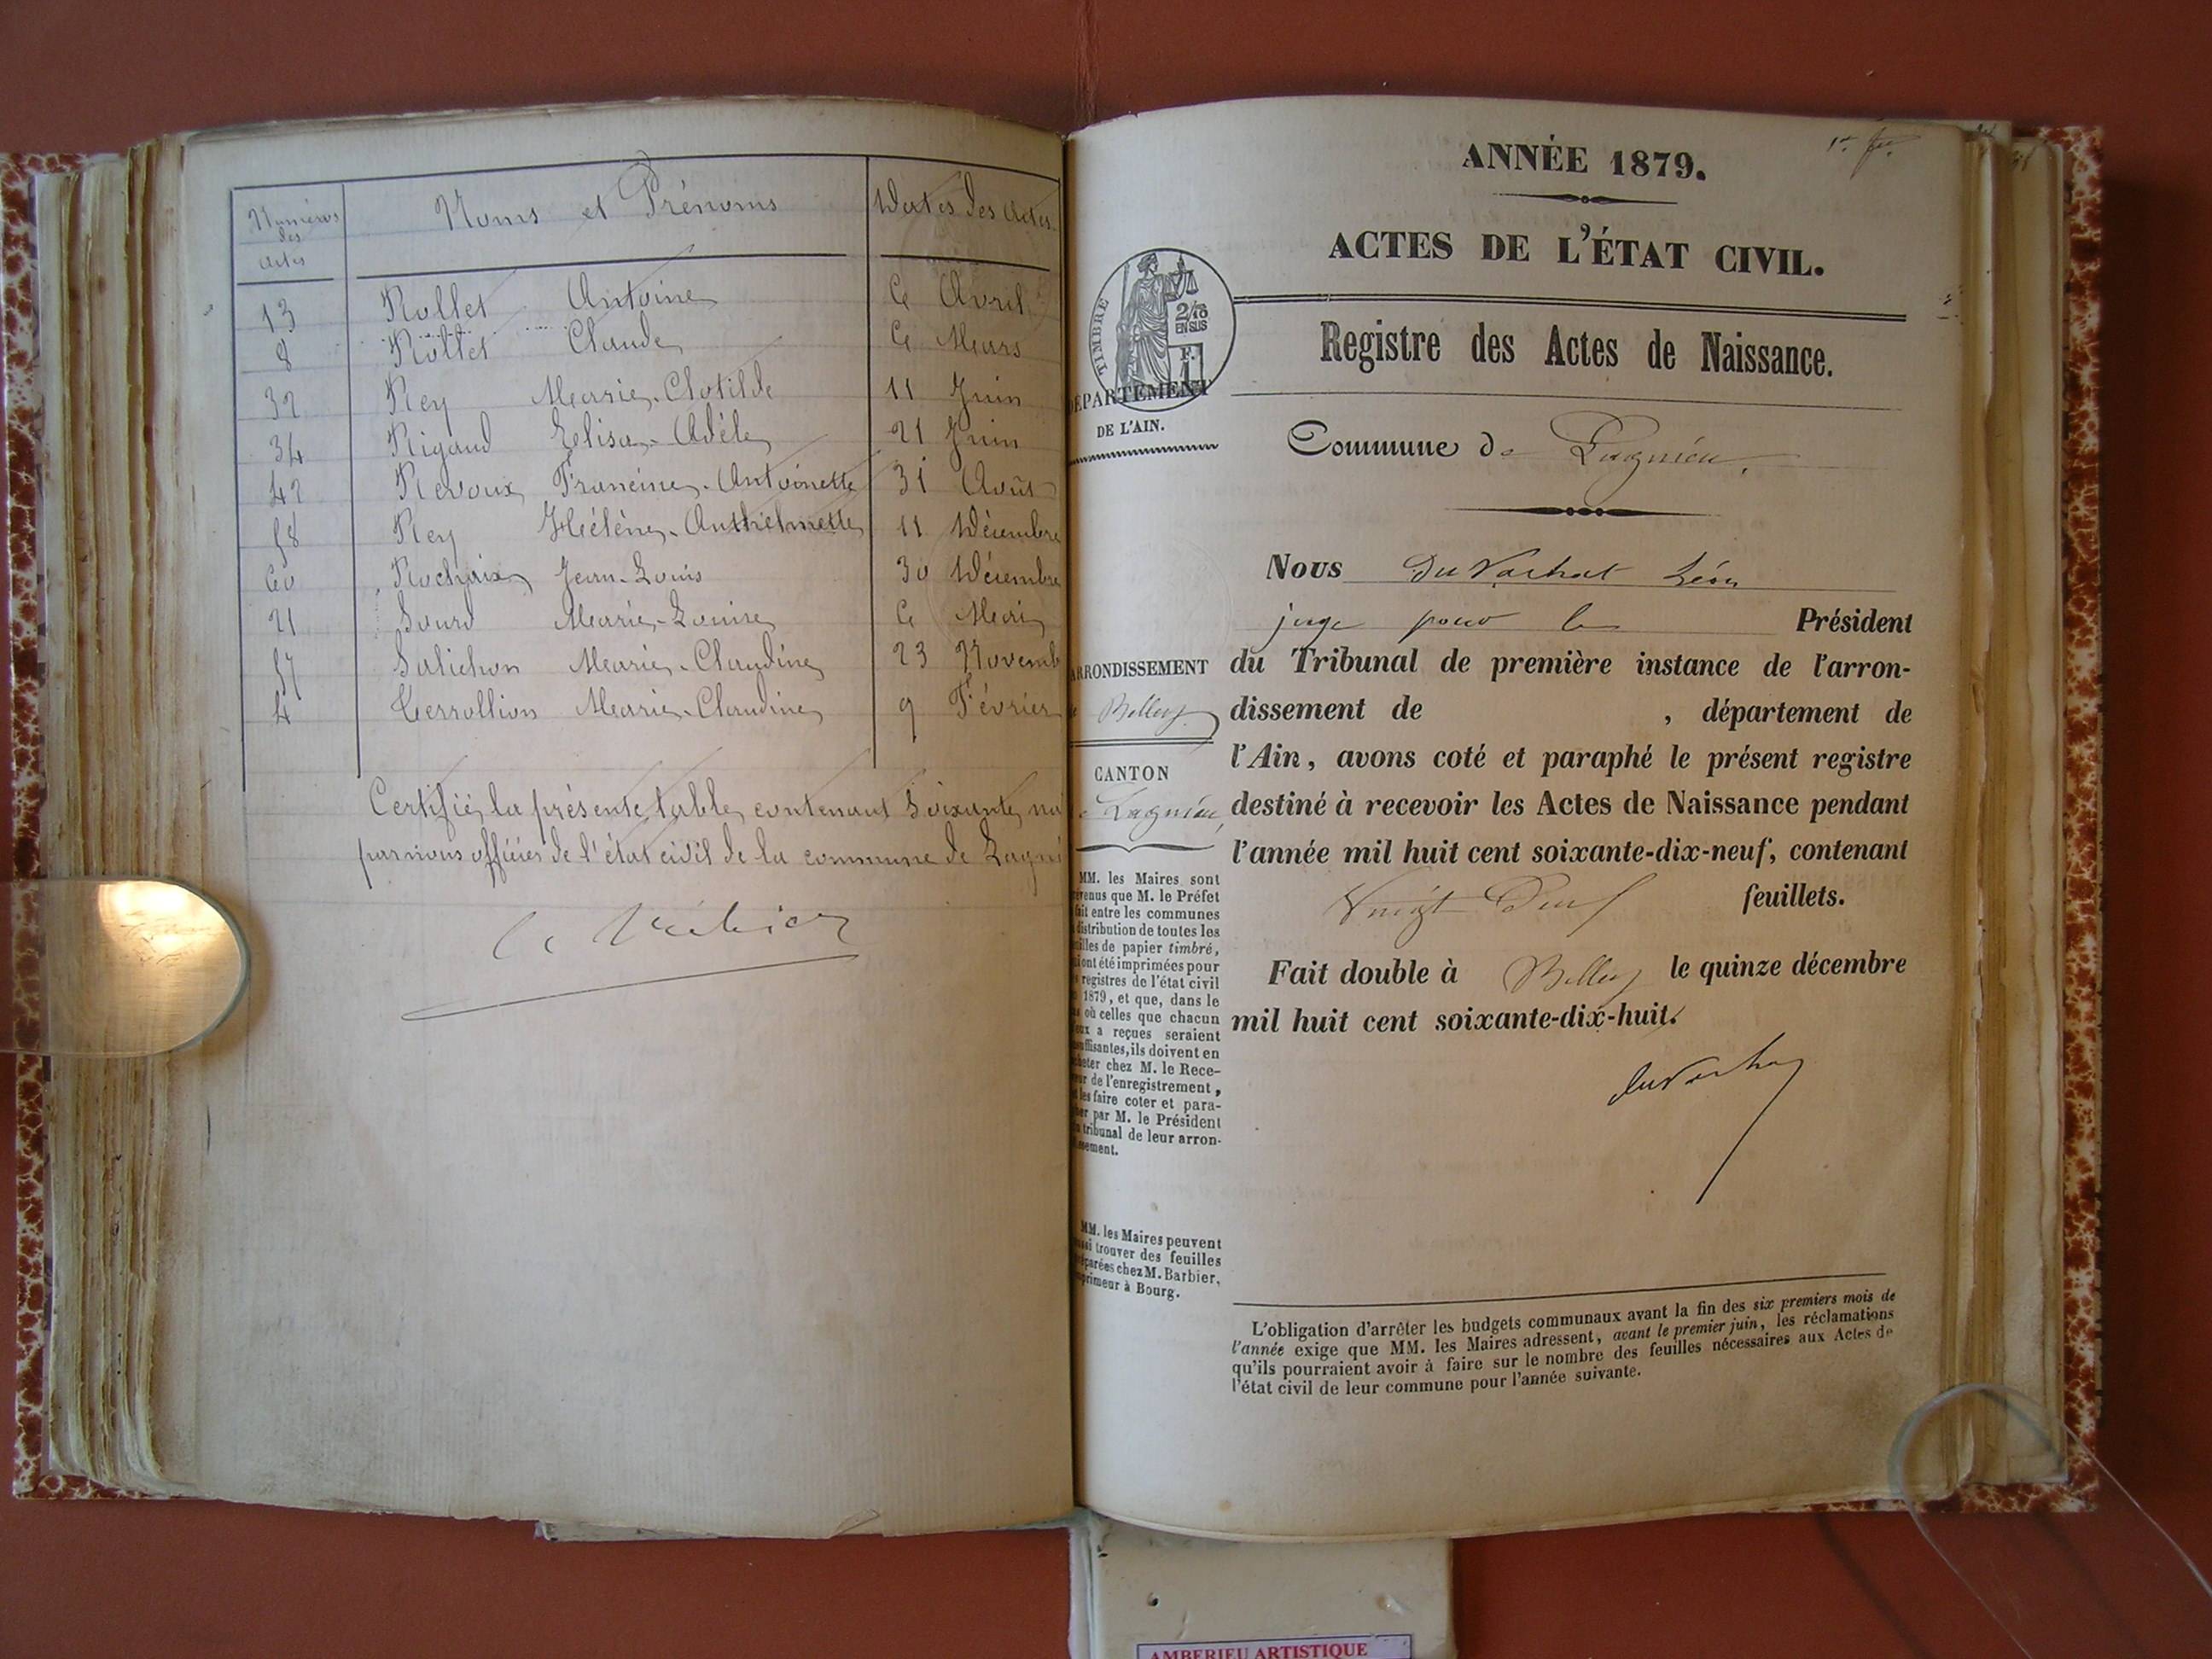 Numéros des actes
Noms et Prénoms
Dates des actes
13 Rollet Antoine 6 Avril
8 Rollet Claude 6 Mars
32 Rey Marie-Clotilde 11 Juin
34 Rigaud Elisa-Adèle 21 Juin
42 Revoux Francine-Antoinette 31 Août
58 Rey Hélène-Anthelmette 11 Décembre
60 Rochaix Jean-Louis 30 Décembre
21 Sourd Marie-Louise 6 Mai
57 Salichon Marie-Claudine 23 Novemb
4 Terrollion Marie-Claudine 9 Février
Certifié la présente table contenant soixante
par nous officier de l'état civil de la commune de Lagni
ANNÉE 1879.
ACTES DE L'ÉTAT CIVIL.
TIMBRE
2/10
EN SUS
F.
1
DÉPARTEMENT
DE L'AIN.
Registre des Actes de Naissance.
Commune de Lagnieu.
Nous Du Vachat Léon
juge pour le Président
du Tribunal de première instance de l'arron-
dissement de , département de
l'Ain, avons coté et paraphé le présent registre
destiné à recevoir les Actes de Naissance pendant
l'année mil huit cent soixante-dix-neuf, contenant
Vingt feuillets.
Fait double à Belley le quinze décembre
mil huit cent soixante-dix-huit.
duVachat
ARRONDISSEMENT
Belley
CANTON
Lagnieu
MM. les Maires sont
évenus que M. le Préfet
fait entre les communes
distribution de toutes les
illes de papier timbré,
i ont été imprimées pour
s registres de l'état civil
1879, et que, dans le
s où celles que chacun
eux a reçues seraient
uffisantes, ils doivent en
heter chez M. le Rece-
ur de l'enregistrement,
les faire coter et para-
her par M. le Président
tribunal de leur arron-
ssement.
MM. les Maires peuvent
ssi trouver des feuilles
éparées chez M. Barbier,
primeur à Bourg.
L'obligation d'arrêter les budgets communaux avant la fin des six premiers mois de
l'année exige que MM. les Maires adressent, avant le premier juin, les réclamations
qu'ils pourraient avoir à faire sur le nombre des feuilles nécessaires aux Actes de
l'état civil de leur commune pour l'année suivante.
AMBERIEU ARTISTIQUE